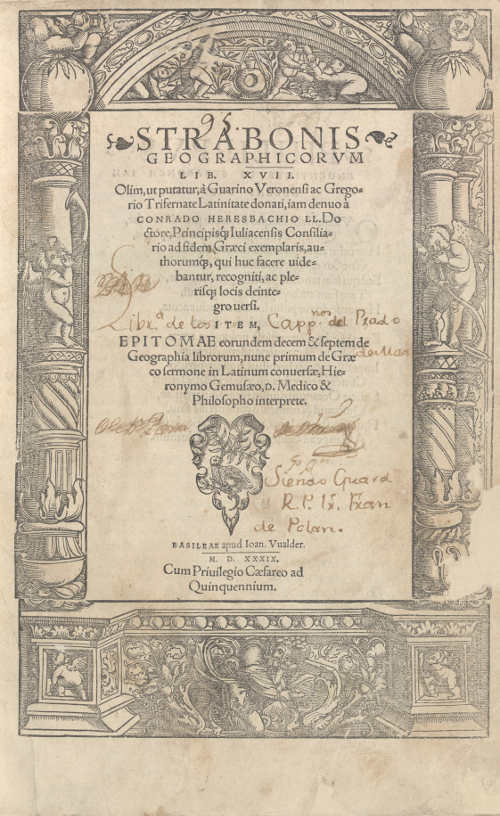 95.
STRABONIS
GEOGRAPHICORVM
LIB. XVII.
Olim, ut putatur, à Guarino Veronensi ac Grego-
rio Trifernate Latinitate donati, iam denuo à
CONRADO HERESBACHIO LL. Do
ctore, Principisq́; Iuliacensis Consilia-
rio ad fidem Græci exemplaris, au-
thorumq́;, qui huc facere uide-
bantur, recogniti, ac ple-
risq́; locis deinte-
gro uersi.
ITEM,
Libr.ª de los Capp.nos del Prado
de Mad
EPITOMAE eorundem decem & septem de
Geographia librorum, nunc primum de Græ
co sermone in Latinum conuersæ, Hie-
ronymo Gemusæo, D. Medico &
Philosopho interprete.
Siendo Guard
R. P. Fr. Fran
de Polan.
BASILEAE apud Ioan. Vualder.
M. D. XXXIX.
Cum Priuilegio Cæsareo ad
Quinquennium.